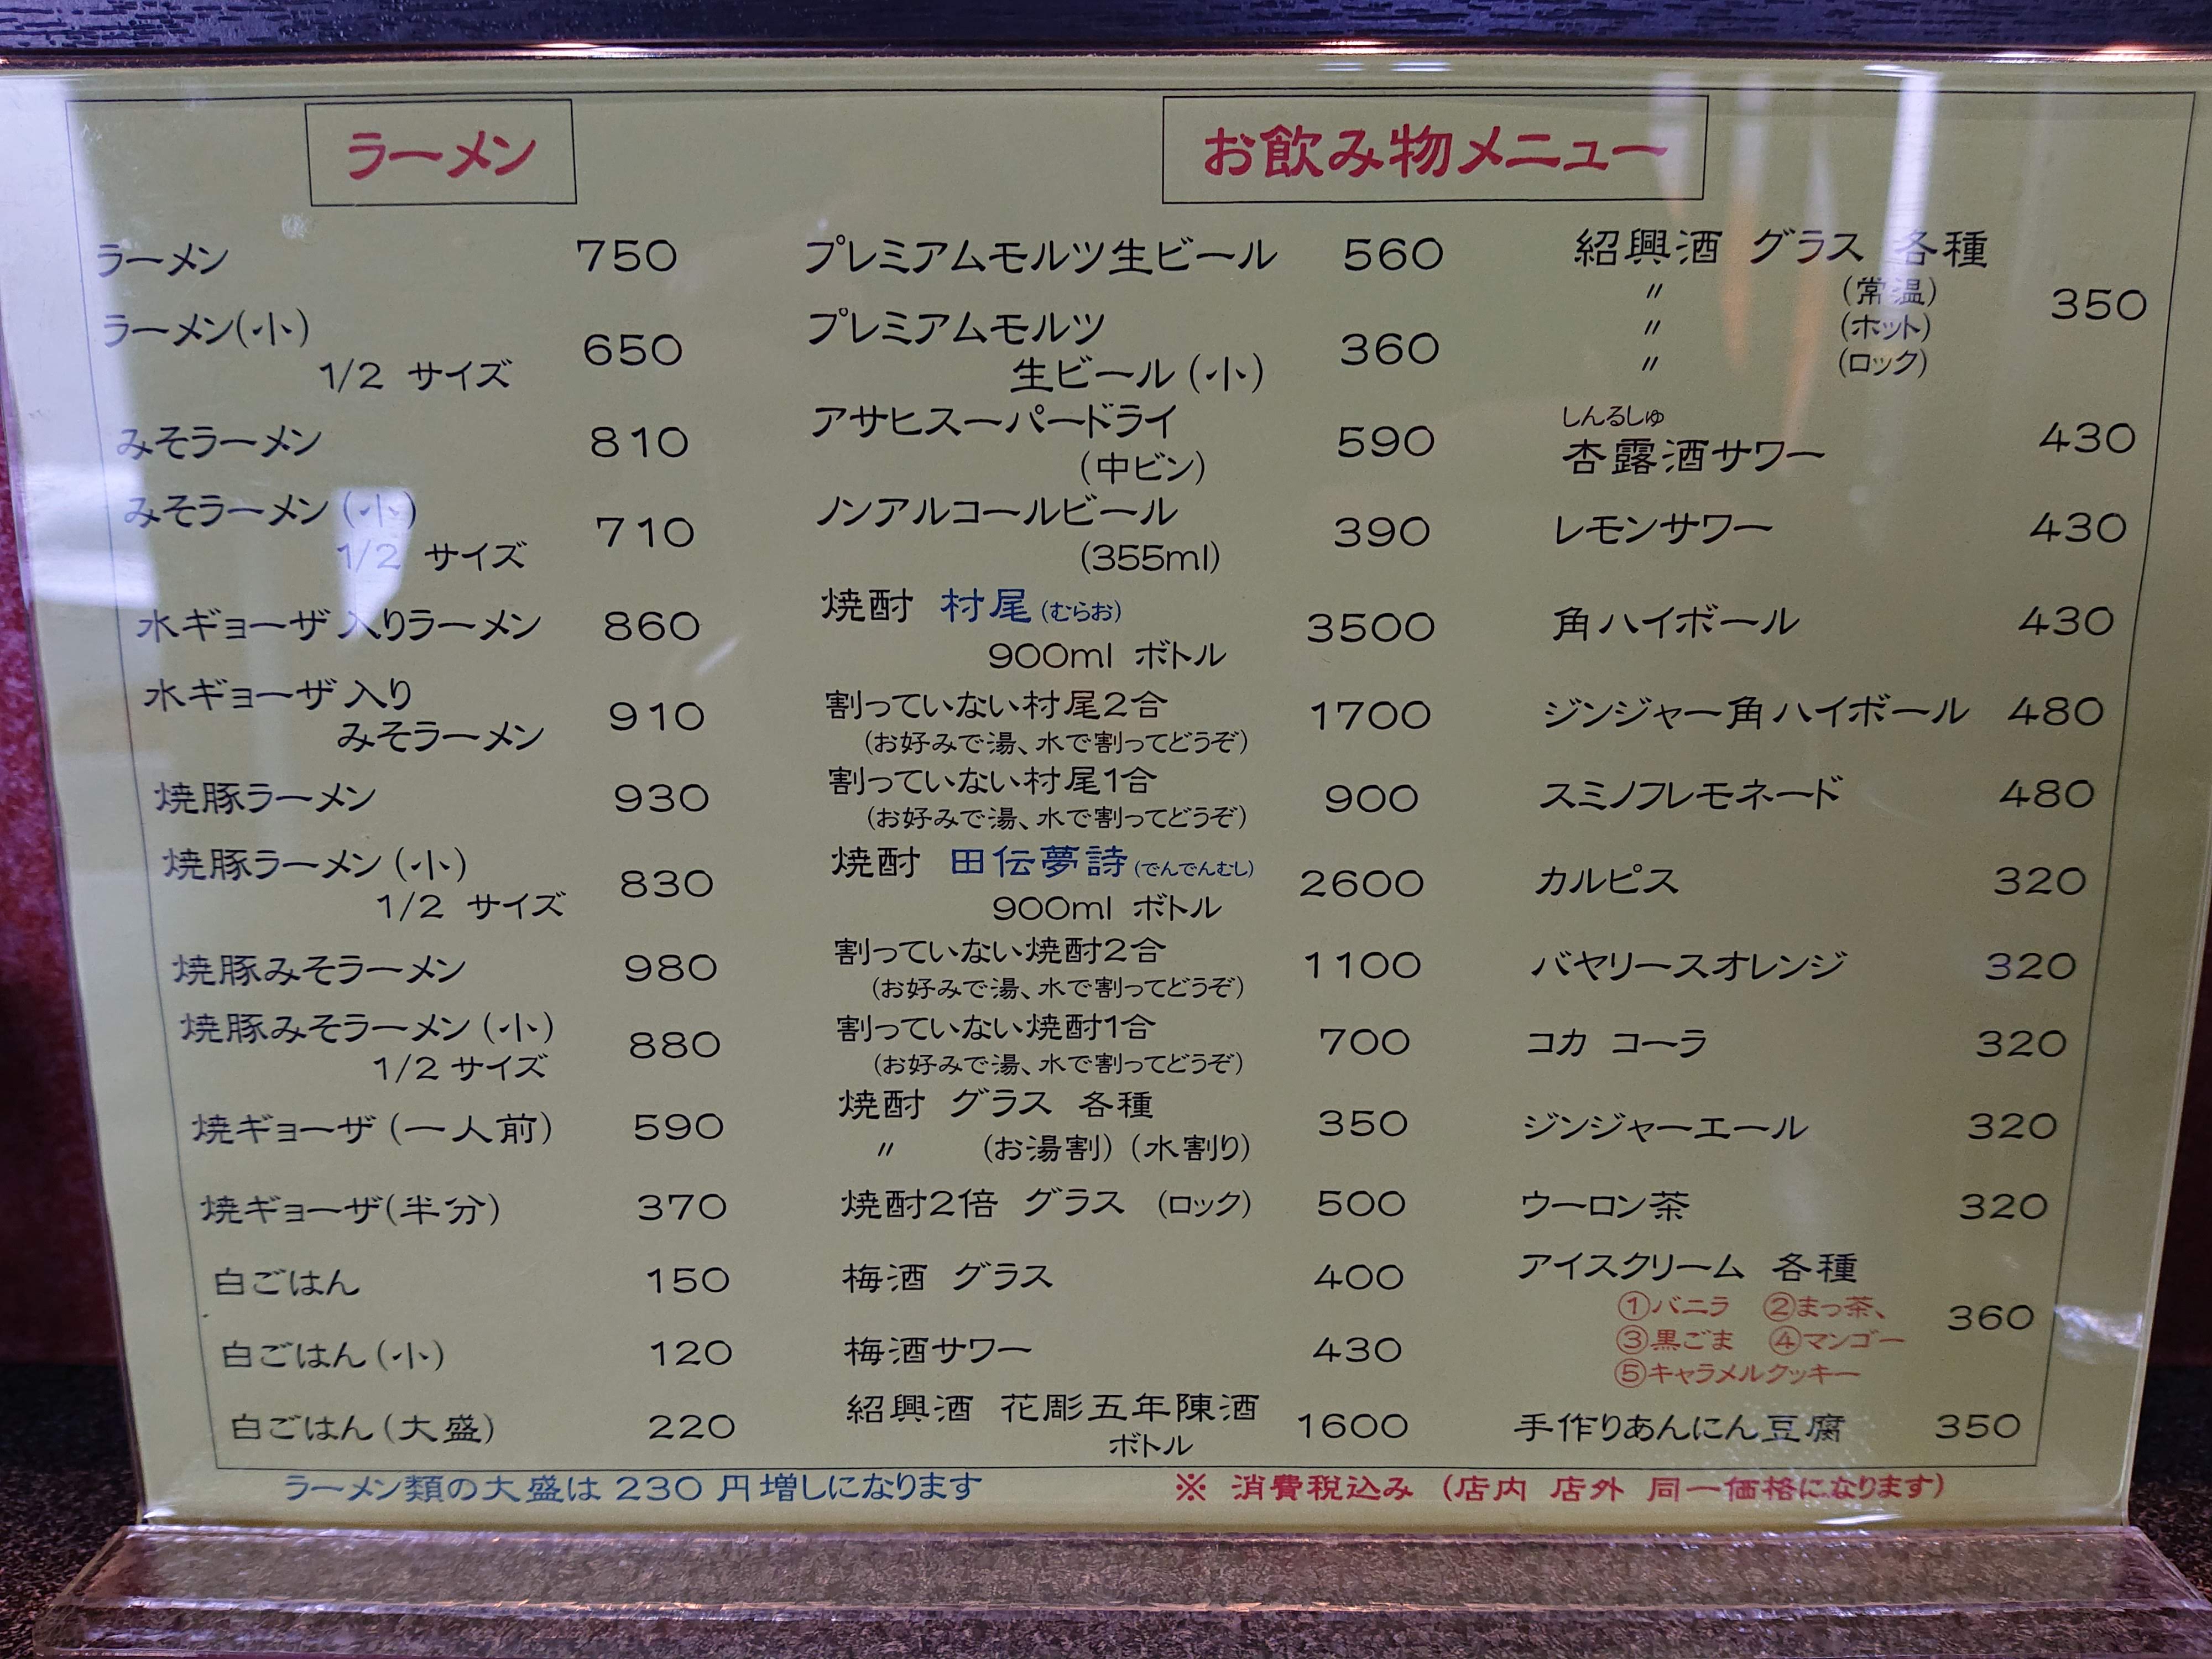 ラーメン
ラーメン 750
ラーメン(小)
1/2 サイズ 650
みそラーメン 810
みそラーメン(小)
1/2 サイズ 710
水ギョーザ入りラーメン 860
水ギョーザ入り
みそラーメン 910
焼豚ラーメン 930
焼豚ラーメン(小)
1/2 サイズ 830
焼豚みそラーメン 980
焼豚みそラーメン(小)
1/2 サイズ 880
焼ギョーザ(一人前) 590
焼ギョーザ(半分) 370
白ごはん 150
白ごはん(小) 120
白ごはん(大盛) 220
ラーメン類の大盛は 230 円増しになります
お飲み物メニュー
プレミアムモルツ生ビール 560
プレミアムモルツ
生ビール(小) 360
アサヒスーパードライ
(中ビン) 590
ノンアルコールビール
(355ml) 390
焼酎 村尾(むらお)
900ml ボトル 3500
割っていない村尾2合 1700
(お好みで湯、水で割ってどうぞ)
割っていない村尾1合 900
(お好みで湯、水で割ってどうぞ)
焼酎 田伝夢詩(でんでんむし)
900ml ボトル 2600
割っていない焼酎2合 1100
(お好みで湯、水で割ってどうぞ)
割っていない焼酎1合 700
(お好みで湯、水で割ってどうぞ)
焼酎 グラス 各種 350
〃 (お湯割)(水割り)
焼酎2倍 グラス (ロック) 500
梅酒 グラス 400
梅酒サワー 430
紹興酒 花彫五年陳酒
ボトル 1600
紹興酒 グラス 各種
〃 (常温) 350
〃 (ホット)
〃 (ロック)
しんるしゅ
杏露酒サワー 430
レモンサワー 430
角ハイボール 430
ジンジャー角ハイボール 480
スミノフレモネード 480
カルピス 320
バヤリースオレンジ 320
コカ コーラ 320
ジンジャーエール 320
ウーロン茶 320
アイスクリーム 各種
①バニラ ②まっ茶、 360
③黒ごま ④マンゴー
⑤キャラメルクッキー
手作りあんにん豆腐 350
※ 消費税込み (店内 店外 同一価格になります)